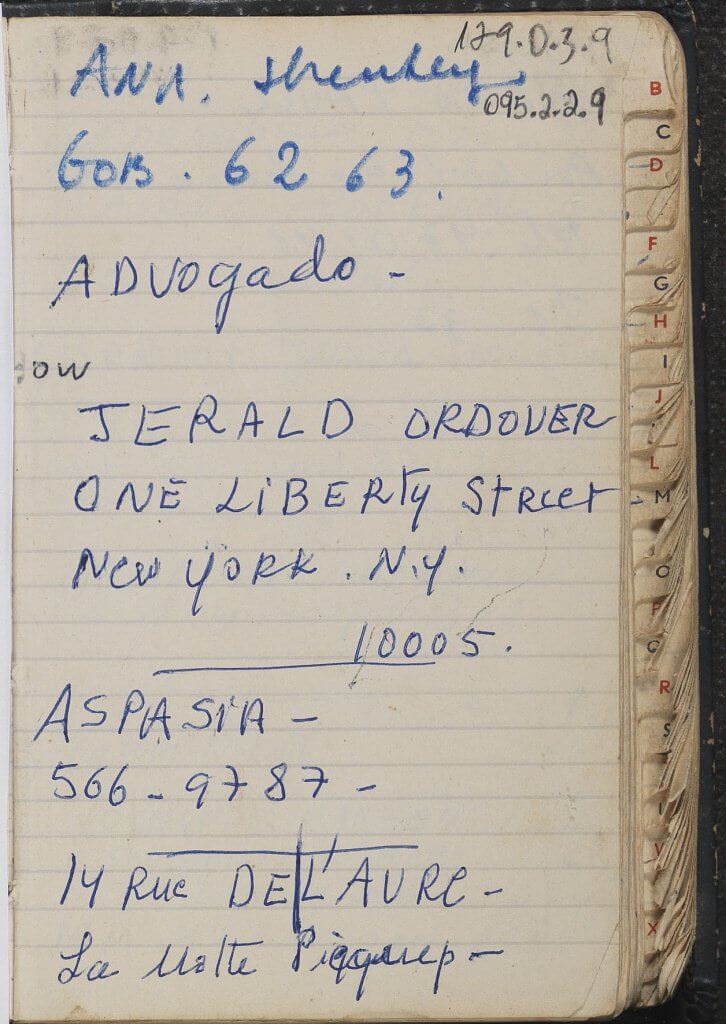 129.0.3.9
Ann. Shenkey
095.2.2.9
GOB. 62 63.
ADVOgado -
ow
JERALD ORDOVER
ONE LiBERTy Street -
New YORK. N.Y.
10005.
ASPASIA -
566-9787-
14 Rue DE L'AURE -
La Motte Picquep -
B
C
D
F
G
H
I
J
L
M
O
P
Q
R
S
V
X